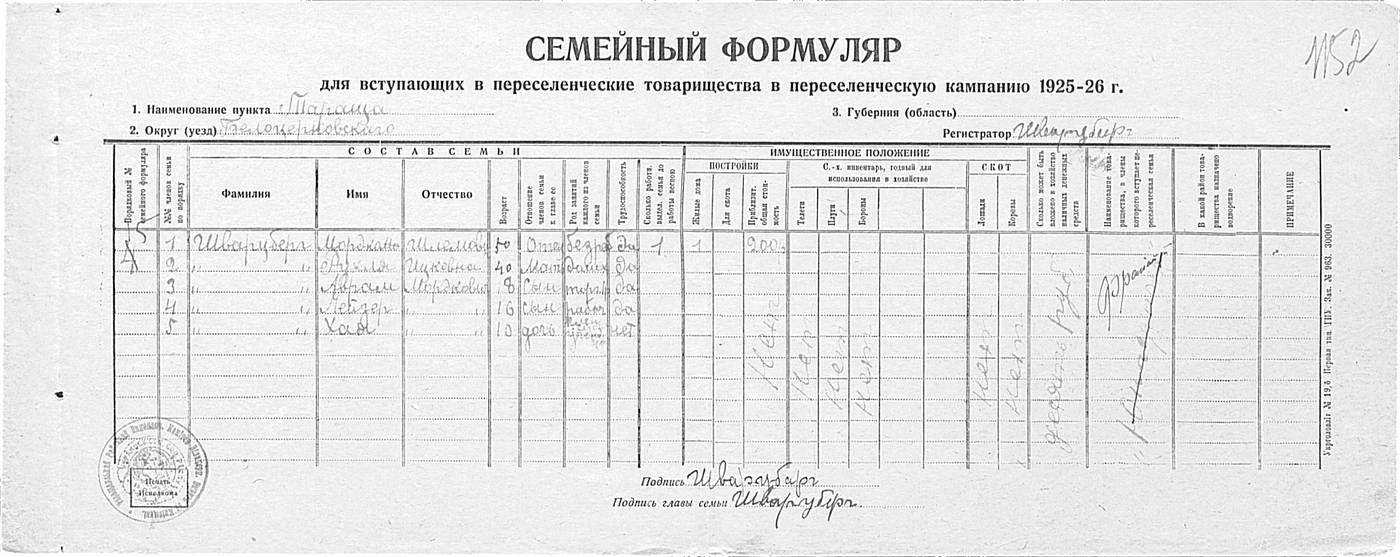 1152
СЕМЕЙНЫЙ ФОРМУЛЯР
для вступающих в переселенческие товарищества в переселенческую кампанию 1925-26 г.
1. Наименование пункта г. Тараща
3. Губерния (область)
2. Округ (уезд) Белоцерковского
Регистратор Шварцберг
СОСТАВ СЕМЬИ
ИМУЩЕСТВЕННОЕ ПОЛОЖЕНИЕ
ПОСТРОЙКИ
С.-х. инвентарь, годный для использования в хозяйстве
СКОТ
Порядковый № семейного формуляра
№№ членов семьи по порядку
Фамилия
Имя
Отчество
Возраст
Отношение членов семьи к главе ее
Род занятий каждого из членов семьи
Трудоспособность
Сколько работн. выдел. семья до работы весною
Жилые дома
Для скота
Приблизит. общая стоимость
Телеги
Плуги
Бороны
Лошади
Коровы
Сколько может быть вложено в хозяйство наличных денежных средств
Наименование товарищества, в члены которого вступает переселенческая семья
В какой район товарищества назначено водворение
ПРИМЕЧАНИЕ
5 1 Шварцберг Шлемов 50 Отец безраб Да 1 1 200
2 " " Рухля Ицковна 40 Мат Да
3 " " Аврам Мордков 18 Сын да
4 " " Лейзер " " 16 сын рабоч да
5 " " Хая " " 10 дочь нет
Нет
Нет
Нет
Нет
Нет
Нет
десять руб
Укрголовліт № 19,6 Первая тип. ГИУ. Зак. № 963. 30000
Печать Исполкома
Подпись Шварцберг
Подпись главы семьи Шварцберг.